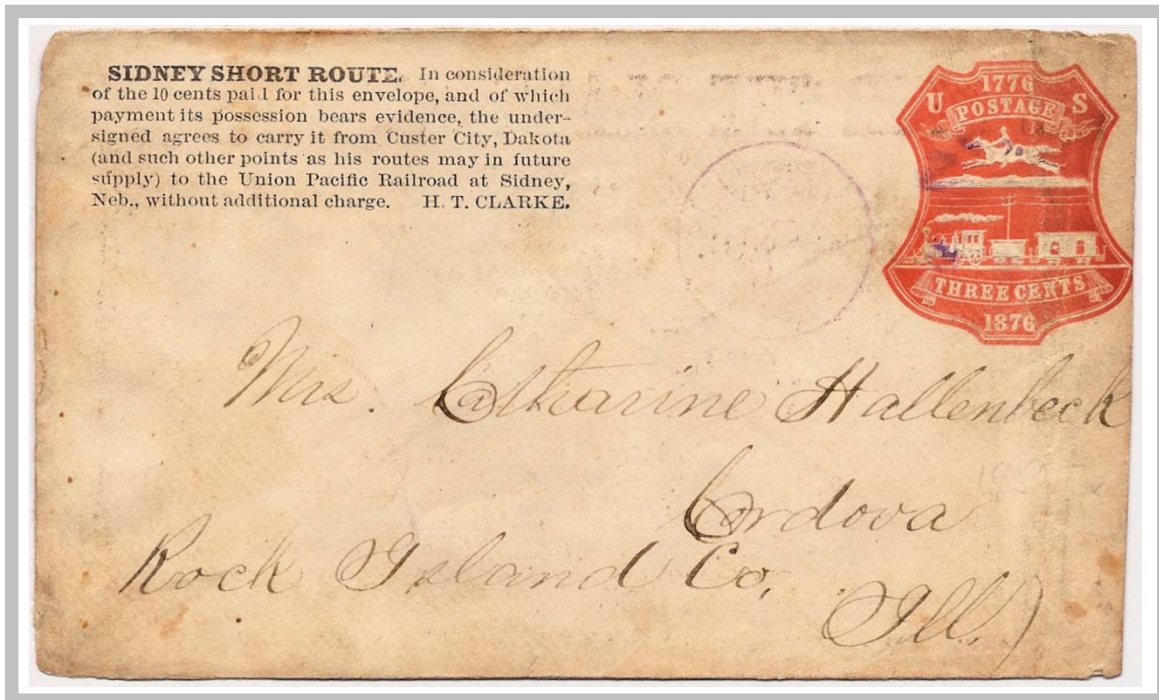 SIDNEY SHORT ROUTE. In consideration
of the 10 cents paid for this envelope, and of which
payment its possession bears evidence, the under-
signed agrees to carry it from Custer City, Dakota
(and such other points as his routes may in future
supply) to the Union Pacific Railroad at Sidney,
Neb., without additional charge. H. T. CLARKE.
1776
U S
POSTAGE
THREE CENTS
1876
Mrs. Catharine Hallenbeck
Cordova
Rock Island Co.
Ill.